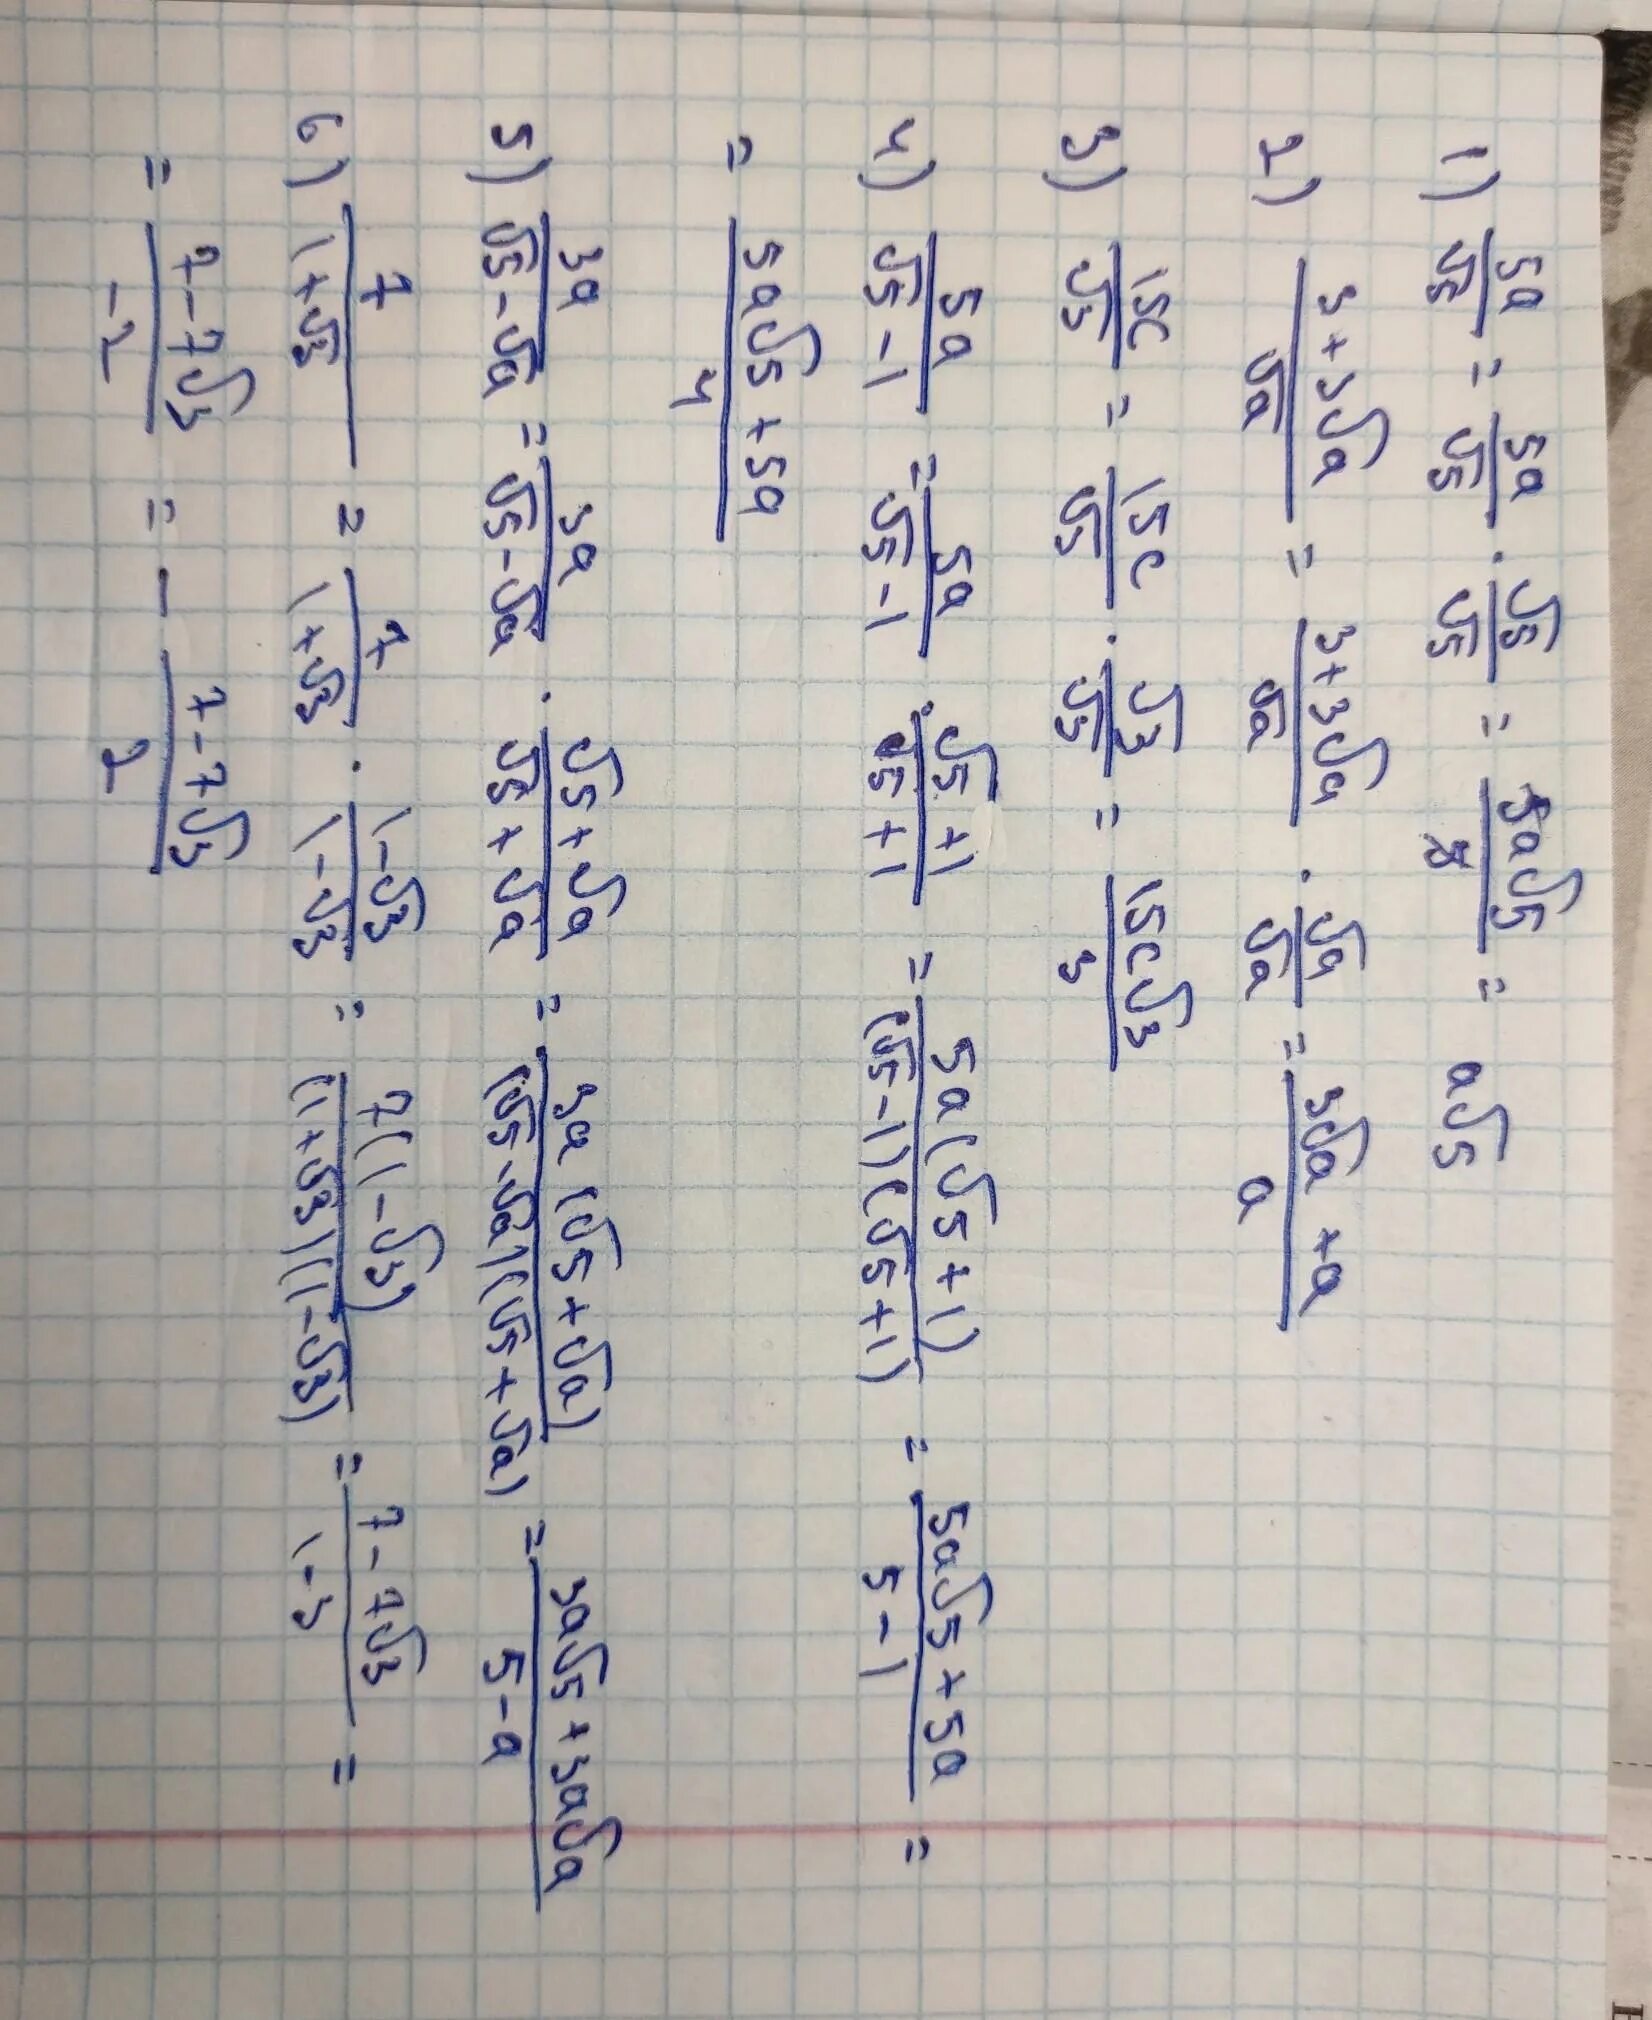 1) 5a/√5 = 5a/√5 · √5/√5 = 5a√5/5 = a√5
2) 3+3√a/√a = 3+3√a/√a · √a/√a = 3√a+a/a
3) 15c/√3 = 15c/√3 · √3/√3 = 15c√3/3
4) 5a/√5-1 = 5a/√5-1 · √5+1/√5+1 = 5a(√5+1)/(√5-1)(√5+1) = 5a√5+5a/5-1 =
= 5a√5+5a/4
5) 3a/√5-√a = 3a/√5-√a · √5+√a/√5+√a = 3a(√5+√a)/(√5-√a)(√5+√a) = 3a√5+3a√a/5-a
6) 7/1+√3 = 7/1+√3 · 1-√3/1-√3 = 7(1-√3)/(1+√3)(1-√3) = 7-7√3/1-3 =
= 7-7√3/-2 = - 7-7√3/2